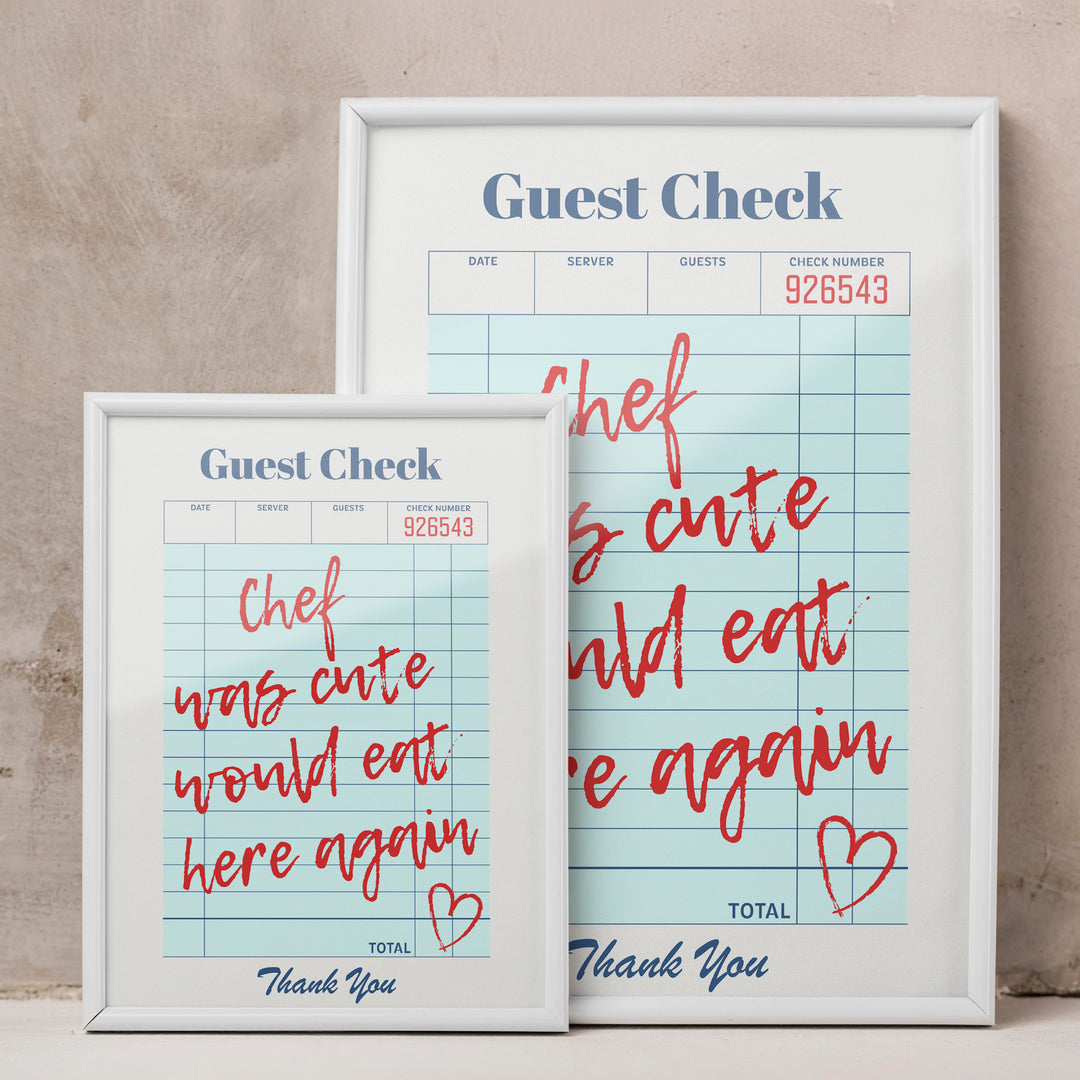 Guest Check
DATE SERVER GUESTS CHECK NUMBER
926543
Chef
was cute
would eat
here again
TOTAL
Thank You
Guest Check
DATE SERVER GUESTS CHECK NUMBER
926543
Chef
cute
eat
again
TOTAL
Thank You